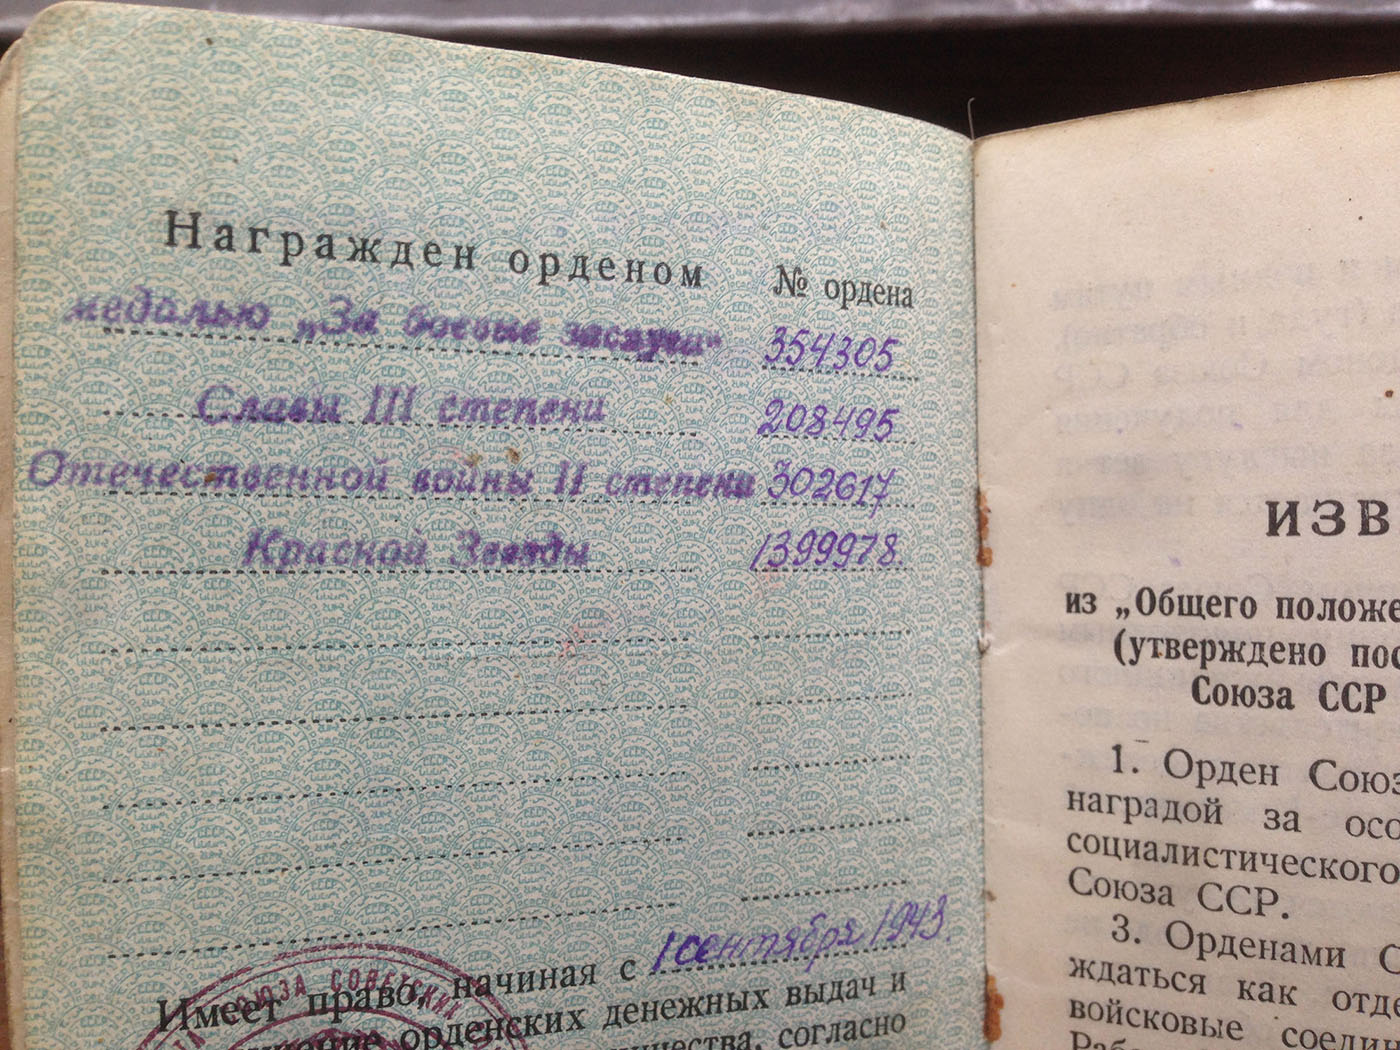 Награжден орденом № ордена
медалью „За боевые заслуги“ 354305
Славы III степени 208495
Отечественной войны II степени 302617
Красной Звезды 1399978.
Имеет право, начиная с 1 сентября 1943.
орденских денежных выдач и
согласно
СОЮЗА СОВЕТСКИХ
ИЗВ
из „Общего положе
(утверждено пос
Союза ССР
1. Орден Союз
наградой за осо
социалистического
Союза ССР.
3. Орденами С
ждаться как отде
войсковые соедин